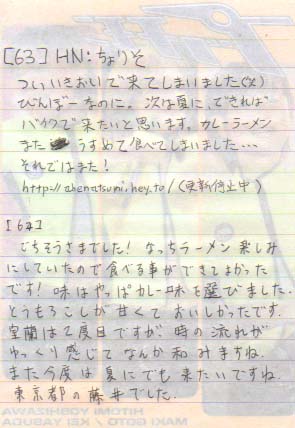 [63] HN:ちょりそ
ついいきおいで来てしまいました(笑)
びんぼーなのに。次は夏に、できれば
バイクで来たいと思います。カレーラーメン
また うすめて食べてしまいました…
それではまた!
http://abenatsumi.hey.to/(更新停止中)
[64]
ごちそうさまでした! なっちラーメン 楽しみ
にしていたので食べる事ができてよかった
です! 味はやっぱカレー味を選びました。
とうもろこしが甘くて おいしかったです。
室蘭は2度目ですが、時の流れが
ゆっくり感じて なんか和みますね。
また今度は 夏にでも 来たいですね。
東京都の藤井でした。
HITOMI YOSHIZAWA
MAKI GOTO / KEI YASUDA